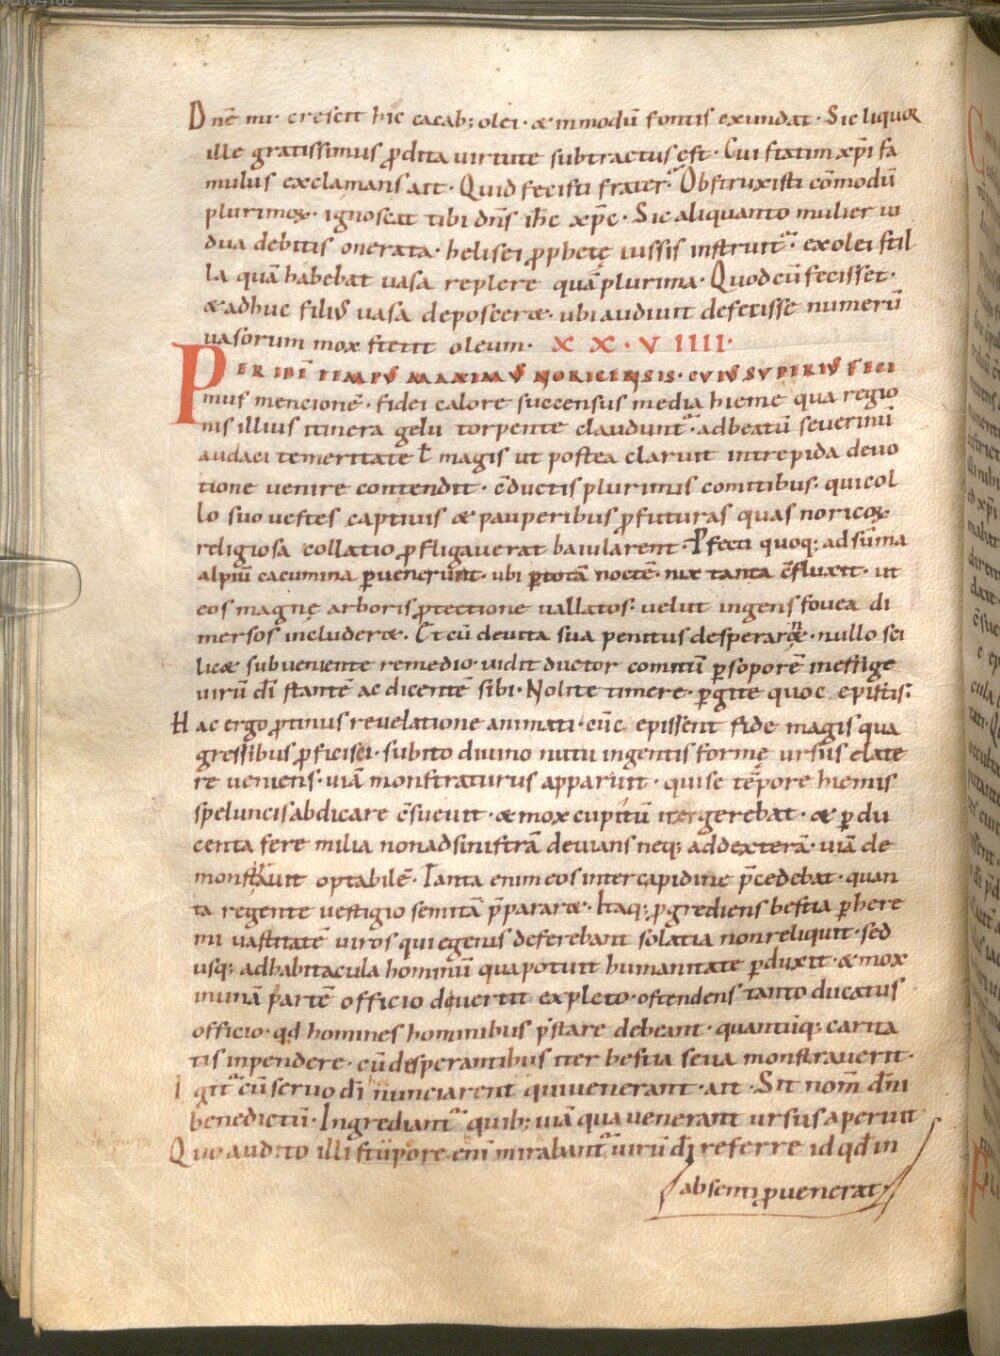 Dnē mi· crescit hic cacab; olei· & inmodū fontis exundat· Sic liquor
ille gratissimus ꝓdita uirtute subtractus est· Cui statim xp̄i fa
mulus exclamans ait· Quid fecisti frater· Obstruxisti cōmodū
plurimoꝝ· ignoscat tibi dn̄s ih̄c xp̄c· Sic aliquanto mulier ui
dua debitis onerata· helisei ꝓphetę iussis instruit᷑· ex olei stil
la quā habebat uasa replere quā plurima· Quod cū fecisset·
& adhuc filiis uasa deposcer&· ubi audiuit defecisse numerū
uasorum mox stetit oleum· XX·VIIII·
PER IDĒ TEMPꝰ MAXIMꝰ NORICENSIS· CVIꝰ SVPERIꝰ FECI
mus mencionē· fidei calore succensus media hieme qua regio
nis illius itinera gelu torpente claudunt᷑· ad beatū seuerinū
audaci temeritate ł magis ut postea claruit intrepida deuo
tione uenire contendit· c̄ductis plurimis comitibus· qui col
lo suo uestes captiuis & pauperibus ꝓfuturas quas noricoꝝ
religiosa collatio ꝓfligauerat baiularent· Ꝓfecti quoq; ad sūma
alpiū cacumina ꝑuenerunt· ubi ꝑ totā noctē nix tanta c̄fluxit· ut
eos magnę arboris ꝓtectione uallatos· uelut ingens fouea di
mersos includer&· Et cū de uita sua penitus desperar&· nullo sci
lic& subueniente remedio· uidit ductor comitū ꝑ soporē in effige
uirū dī stantē ac dicentē sibi· Nolite timere· ꝑgite quo c epistis·
Hac ergo ꝓtinus reuelatione animati· cūc epissent fide magis qua
gressibus ꝓficisci· subito diuino nutu ingentis formę ursus e late
re ueniens· uiā monstraturus apparuit· qui se tēpore hiemis
speluncis abdicare c̄sueuit· & mox cupitū iter gerebat· & ꝑ du
centa fere milia non ad sinistrā deuians neq; ad dexterā· uiā de
monstrauit optabilē· Tanta enim eos intercapidine p̄cedebat· quan
ta regente uestigio semitā p̄parar&· Itaq; ꝓgrediens bestia ꝑ here
mi uastitatē uiros qui egenis deferebant solatia non reliquit· sed
usq; ad habitacula hominū qua potuit humanitate ꝑduxit· & mox
in unā partē officio diuertit expleto· ostendens tanto ducatus
officio· qd̄ homines hominibus p̄stare debeant· quantūq; carita
tis inpendere· cū desperantibus iter bestia seua monstrauerit·
Igit᷑ cū seruo dī nunciarent qui uenerant· ait· Sit nom̄ dn̄i
benedictū· Ingrediant᷑ quib; uiā qua uenerant ursus aperuit
Quo audito illi stūpore eni mirabant᷑ uirū dī referre id qd̄ in
absenti ꝓuenerat·